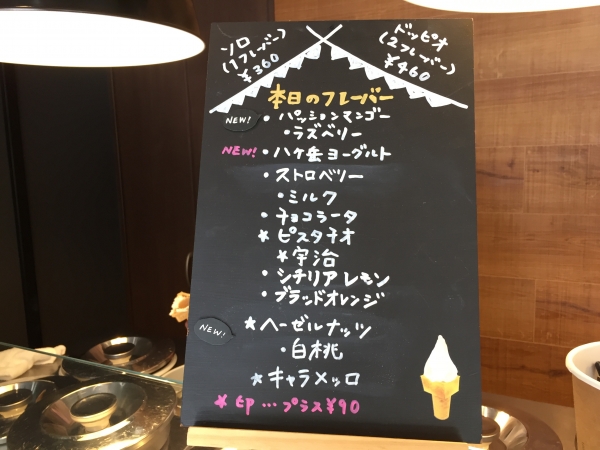 ソロ
(1フレーバー)
¥360
ドッピオ
(2フレーバー)
¥460
本日のフレーバー
NEW! ・パッションマンゴー
・ラズベリー
NEW! ・八ヶ岳ヨーグルト
・ストロベリー
・ミルク
・チョコラータ
★ピスタチオ
★宇治
・シチリアレモン
・ブラッドオレンジ
NEW! ★ヘーゼルナッツ
・白桃
★キャラメッロ
★印…プラス¥90